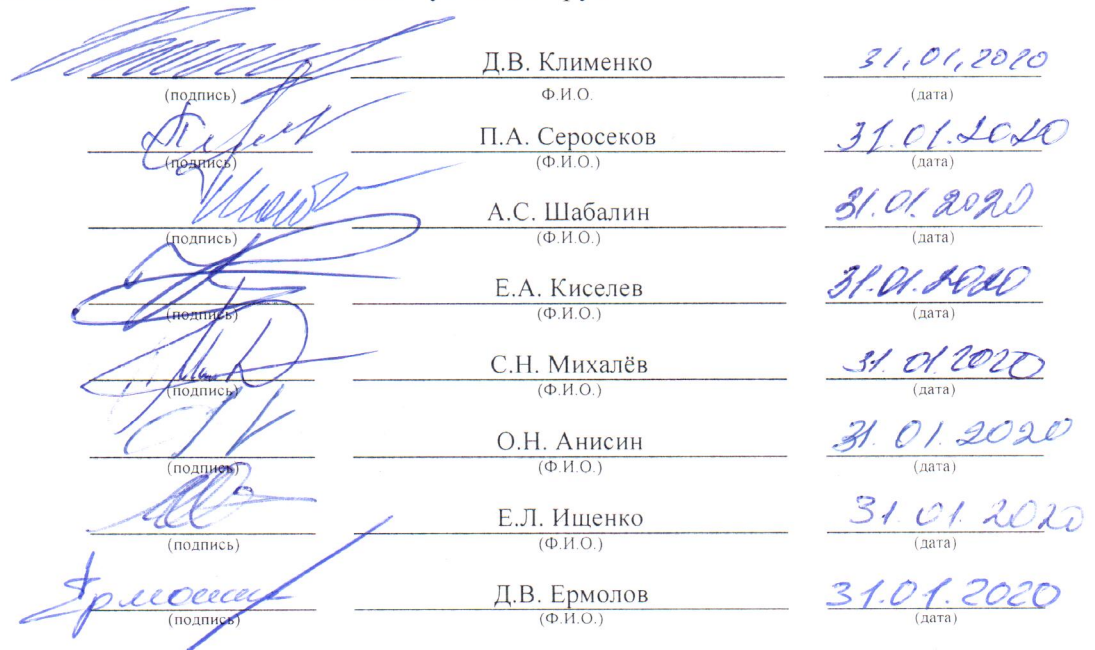 Д.В. Клименко 31.01.2020
(подпись) Ф.И.О. (дата)
П.А. Серосеков 31.01.2020
(подпись) (Ф.И.О.) (дата)
А.С. Шабалин 31.01.2020
(подпись) (Ф.И.О.) (дата)
Е.А. Киселев 31.01.2020
(подпись) (Ф.И.О.) (дата)
С.Н. Михалёв 31.01.2020
(подпись) (Ф.И.О.) (дата)
О.Н. Анисин 31.01.2020
(подпись) (Ф.И.О.) (дата)
Е.Л. Ищенко 31.01.2020
(подпись) (Ф.И.О.) (дата)
Д.В. Ермолов 31.01.2020
(подпись) (Ф.И.О.) (дата)